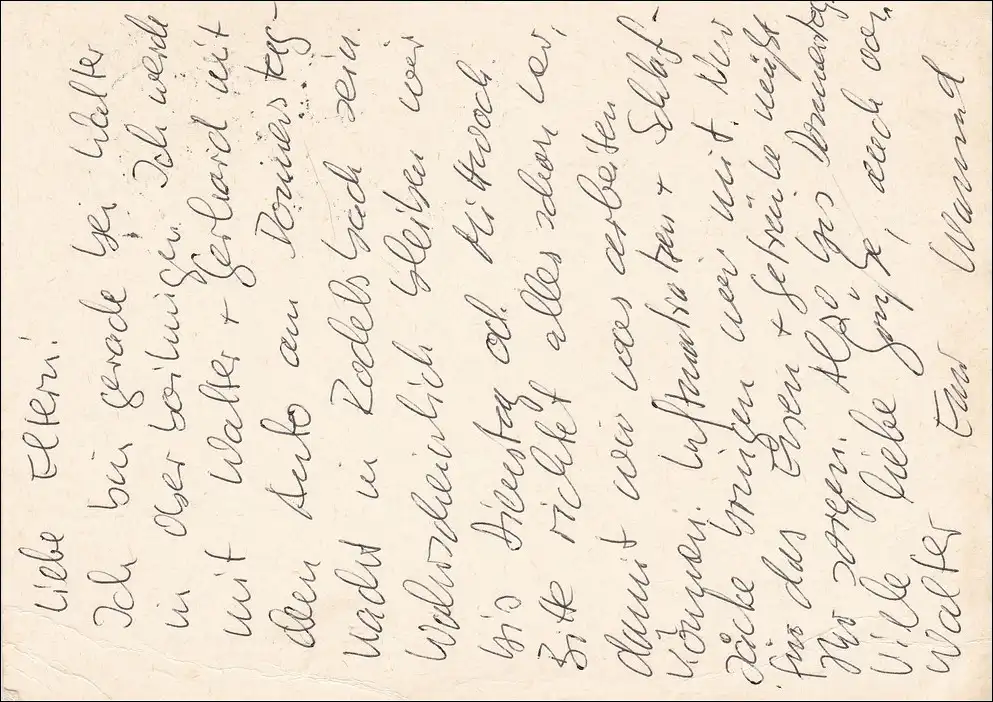 Liebe Eltern!
Ich bin gerade bei Walter
in Oberboihingen. Ich werde
mit Walter + Gerhard mit
dem Auto am Donnerstag-
Nacht in Rodelsbach sein.
Wahrscheinlich bleiben wir
bis Dienstag od. Mittwoch.
Bitte richtet alles schon vor,
damit wir was arbeiten
können. Luftmatratzen + Schlaf-
säcke bringen wir mit. Nur
für das Essen + Getränke müßt
Ihr sorgen. Also bis Donnerstag
Viele liebe Grüße, auch von
Walter Euer Manfred